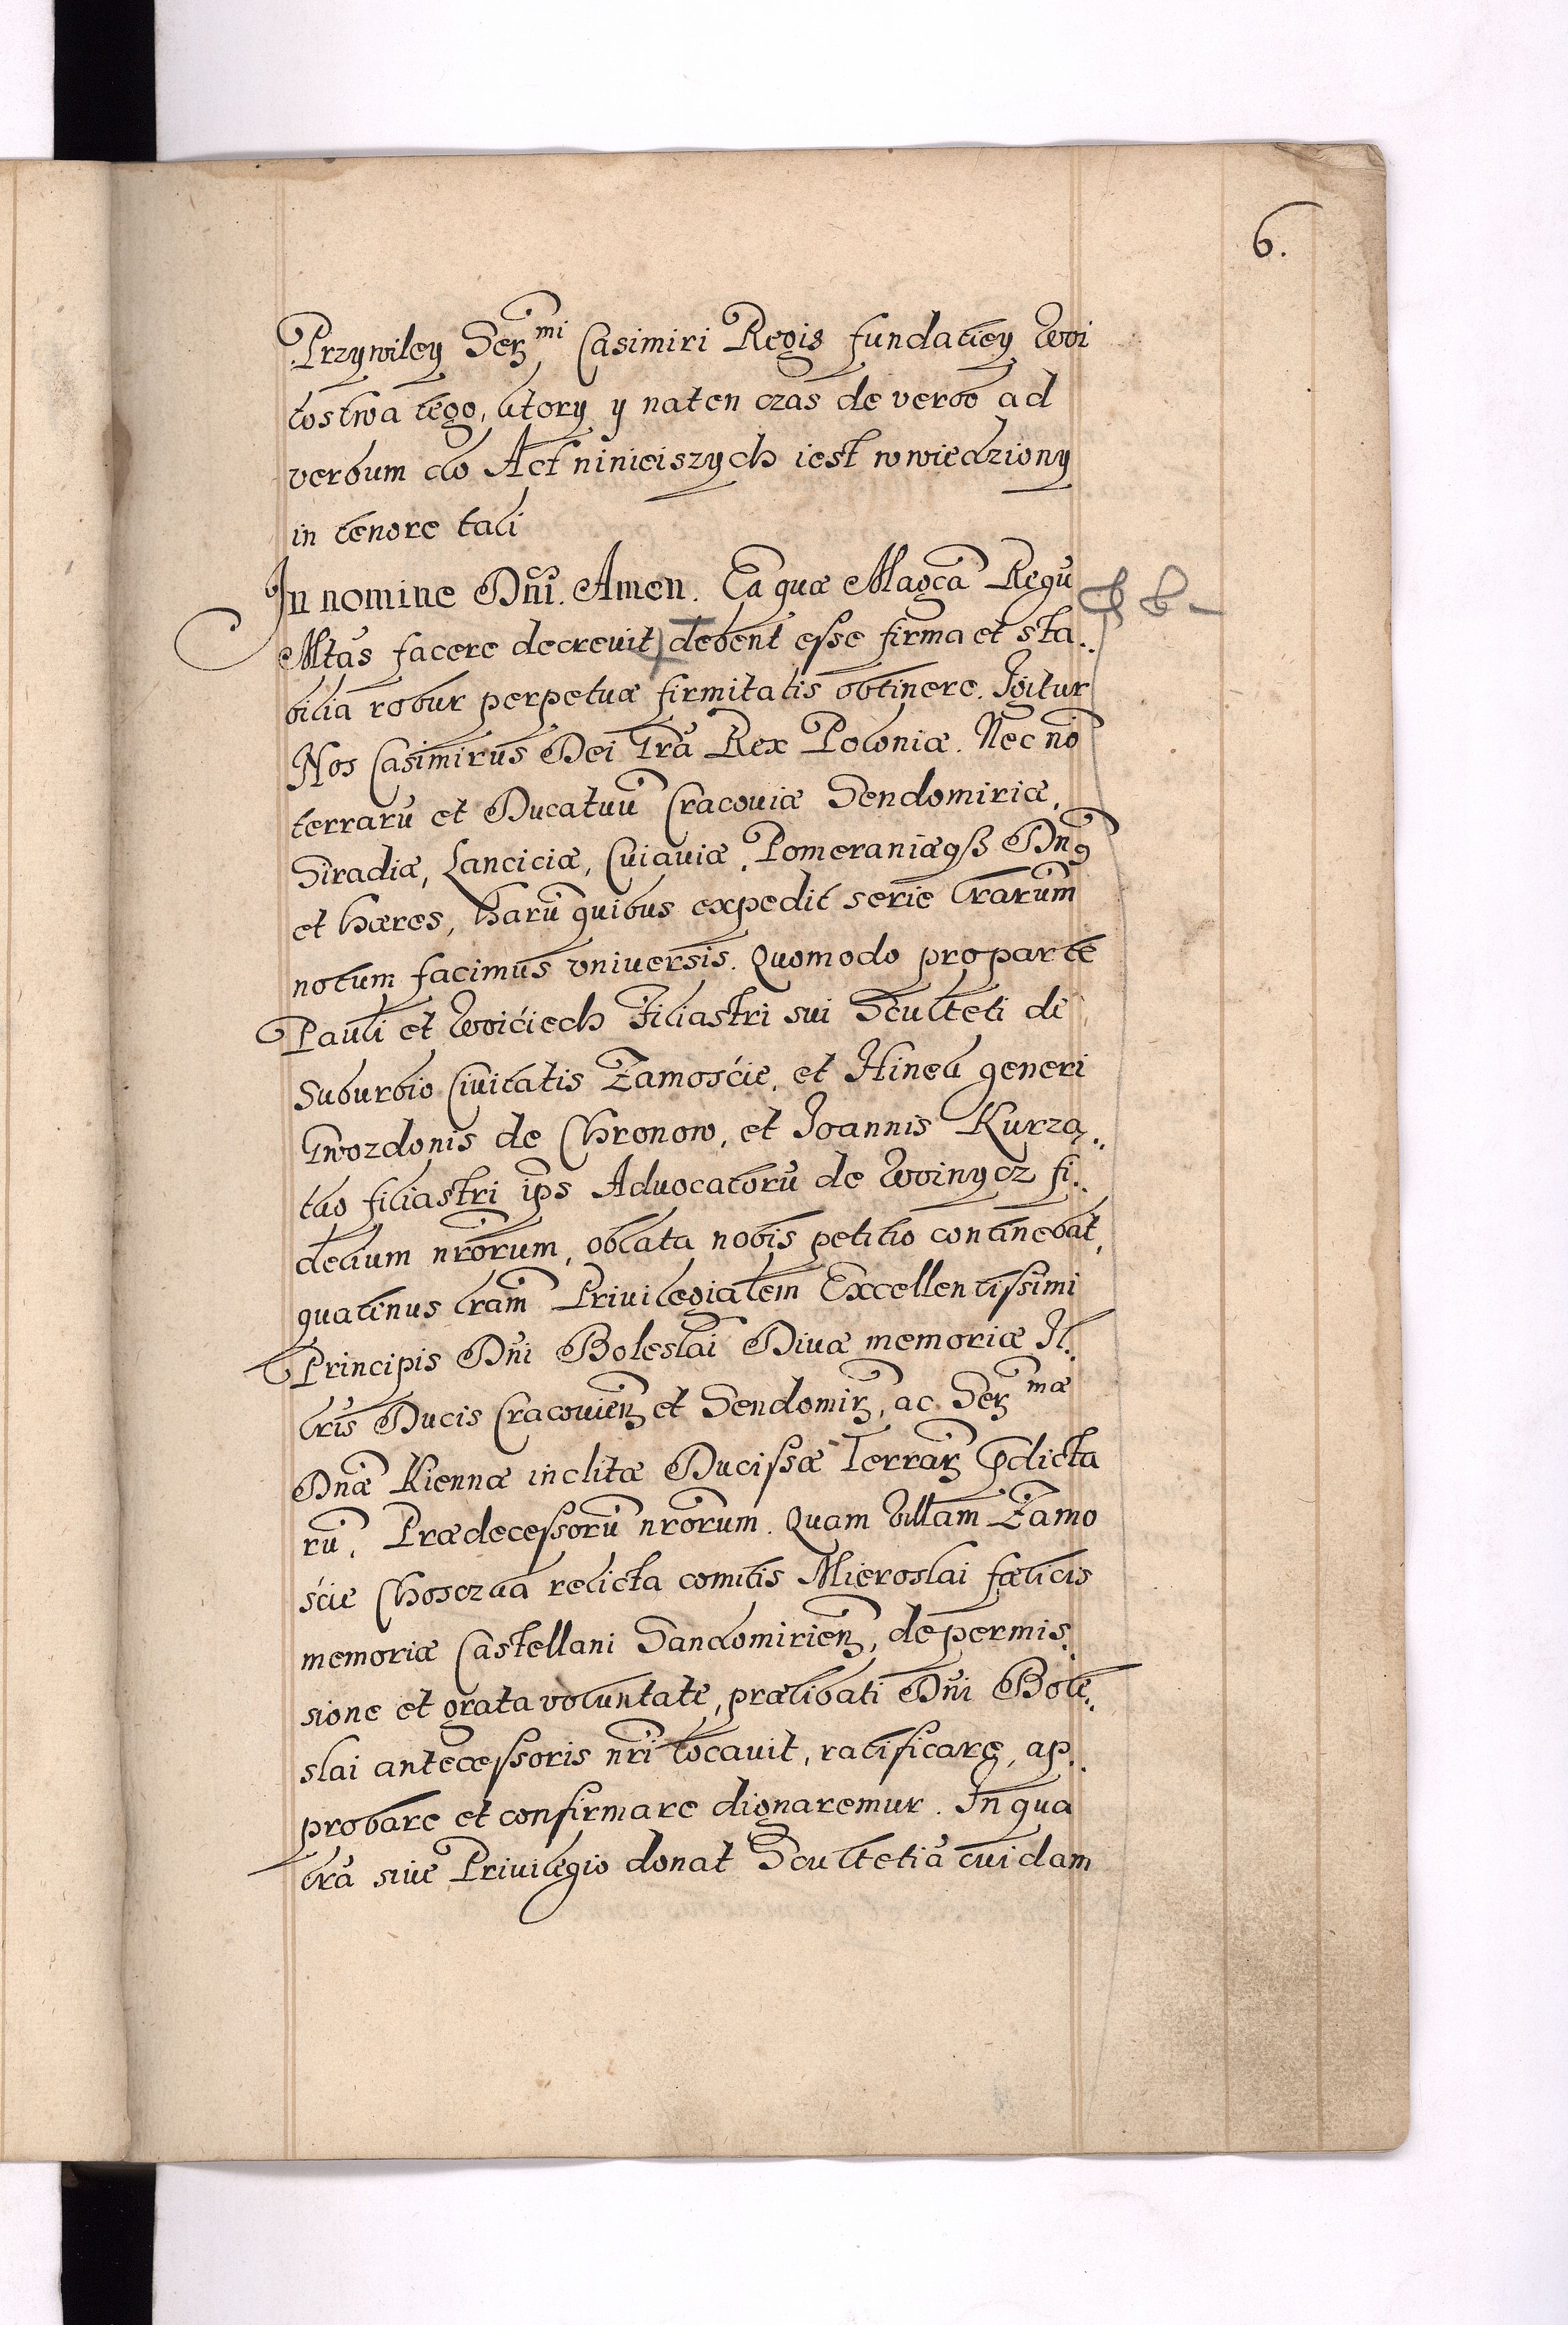 6.
Przywiley Ser^mi Casimiri Regis fundatiey Woi
tostwa tego, ktory y naten czas de verbo ad
verbum do Act ninieiszych iest wwiedziony
in tenore tali
In nomine Dñi. Amen. Ea quæ Magca Regũ
Mtas facere decreuit, debent esse firma et sta..
bilia robur perpetuæ firmitatis obtinere. Igitur
Nos Casimirus Dei Gra Rex Poloniæ. Nec nõ
terrarũ et Ducatuũ Cracouiæ Sendomiriæ,
Siradiæ, Lanciciæ, Cuiauiæ, Pomeraniæqß Dnꝰ
et hæres, harũ quibus expedit serie lrarum
notum facimus vniversis. Quomodo pro parte
Pauli et Woićiech Filiastri sui Sculteti de
Suburbio Ciuitatis Zamośćie, et Hinek generi
Gwozdonis de Chronow, et Joannis Kurzą..
tko filiastri ips Aduocatorũ de Woinycz fi..
delium nrorum, oblata nobis petitio continebat,
quatenus lram Priuilegialem Excellentissimi
Principis Dñi Boleslai Diuæ memoriæ Il.
lris Ducis Cracouien et Sendomir, ac Ser^mæ
Dnæ Kiennæ inclitæ Ducissæ Terrar p̄dicta
rũ, Prædecessorũ nrorum. Quam Villam Zamo
śćie Chosczka relicta comitis Mieroslai fælicis
memoriæ Castellani Sandomirien, de permis.
sione et grata voluntate, prælibati Dñi Bole.
slai antecessoris nri locauit, ratificare, ap..
probare et confirmare dignaremur. In qua
lra siue Priuilegio donat Scultetiã cuidam